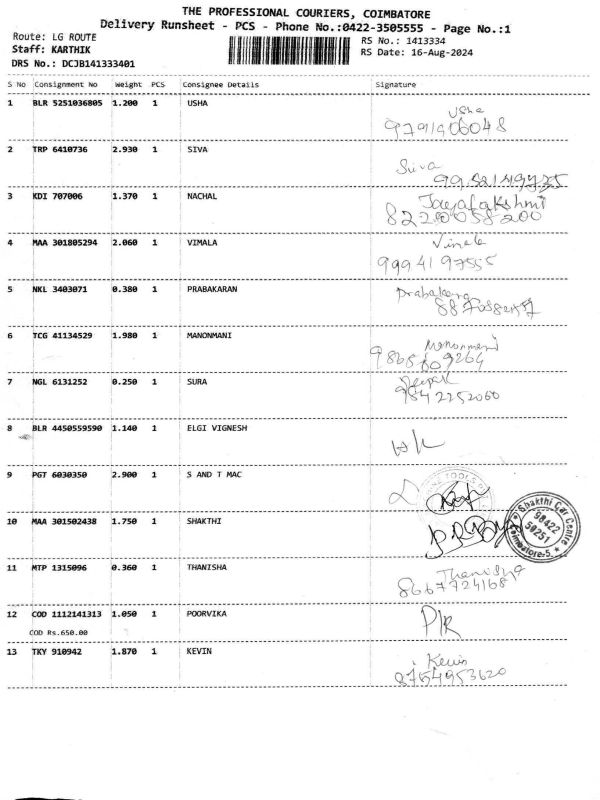 THE PROFESSIONAL COURIERS, COIMBATORE
Delivery Runsheet - PCS - Phone No.:0422-3505555 - Page No.:1
Route: LG ROUTE
RS No.: 1413334
Staff: KARTHIK
RS Date: 16-Aug-2024
DRS No.: DCJB141333401
S No Consignment No Weight PCS Consignee Details Signature
1 BLR 5251036805 1.200 1 USHA Usha
2 TRP 6410736 2.930 1 SIVA Siva
3 KDI 707006 1.370 1 NACHAL Jayalakshmi
8220058200
4 MAA 301805294 2.060 1 VIMALA Vimala
9994197555
5 NKL 3403071 0.380 1 PRABAKARAN Prabakaran
6 TCG 41134529 1.980 1 MANONMANI Manonmani
9865809264
7 NGL 6131252 0.250 1 SURA Deepak
9842252060
8 BLR 4450559590 1.140 1 ELGI VIGNESH
9 PGT 6030350 2.900 1 S AND T MAC
10 MAA 301502438 1.750 1 SHAKTHI
Shakthi Car Centre
98422
50251
Coimbatore-5.
11 MTP 1315096 0.360 1 THANISHA Thanishya
8667724168
12 COD 1112141313 1.050 1 POORVIKA
COD Rs.650.00
13 TKY 910942 1.870 1 KEVIN Kevin
8754953620